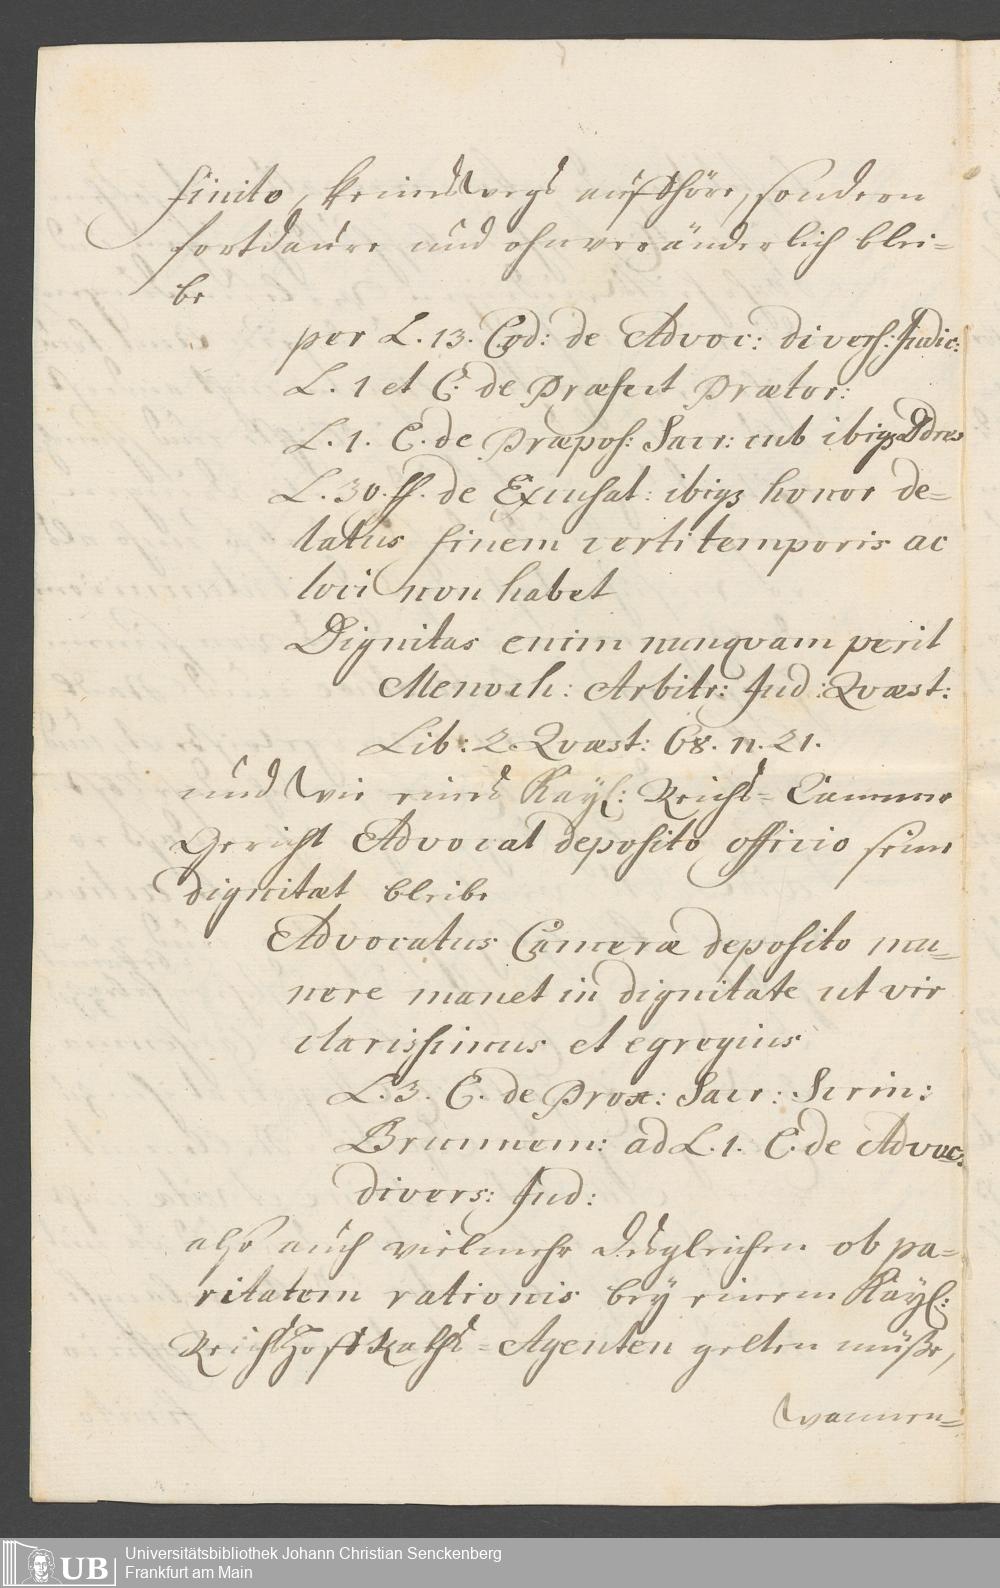 finito, keinesWegs aufhöre, sondern
fortdaure und ohnveränderlich blei=
be
per L. 13. Cod: de Advoc: divers: Judic:
L. 1 et C. de Præfect Prætor:
L. 1. C. de Præpos: Sacr: cub ibiqz Ddres
L. 30. ff. de Excusat: ibiqz honor de=
latus finem certi temporis ac
loci non habet
Dignitas enim nunqvam perit
Menoch: Arbitr: Jud: Qvæst:
Lib: 2. Qvæst: 68. n. 21.
und Wie eines Kayl: Reichs= Cammer
Gericht Advocat deposito officio seine
dignitæt bleibe
Advocatus Cameræ deposito mu=
nere manet in dignitate ut vir
clarissimus et egregius
L. 3. C. de Prox: Sacr: Scrin:
Brunnem: ad L. 1. C. de Advoc:
divers: Jud:
also auch vielmehr desgleichen ob pa=
ritatem rationis bey einem Kayl:
ReichsHofRaths=Agenten gelten müße,
Wannen=
UB
Universitätsbibliothek Johann Christian Senckenberg
Frankfurt am Main